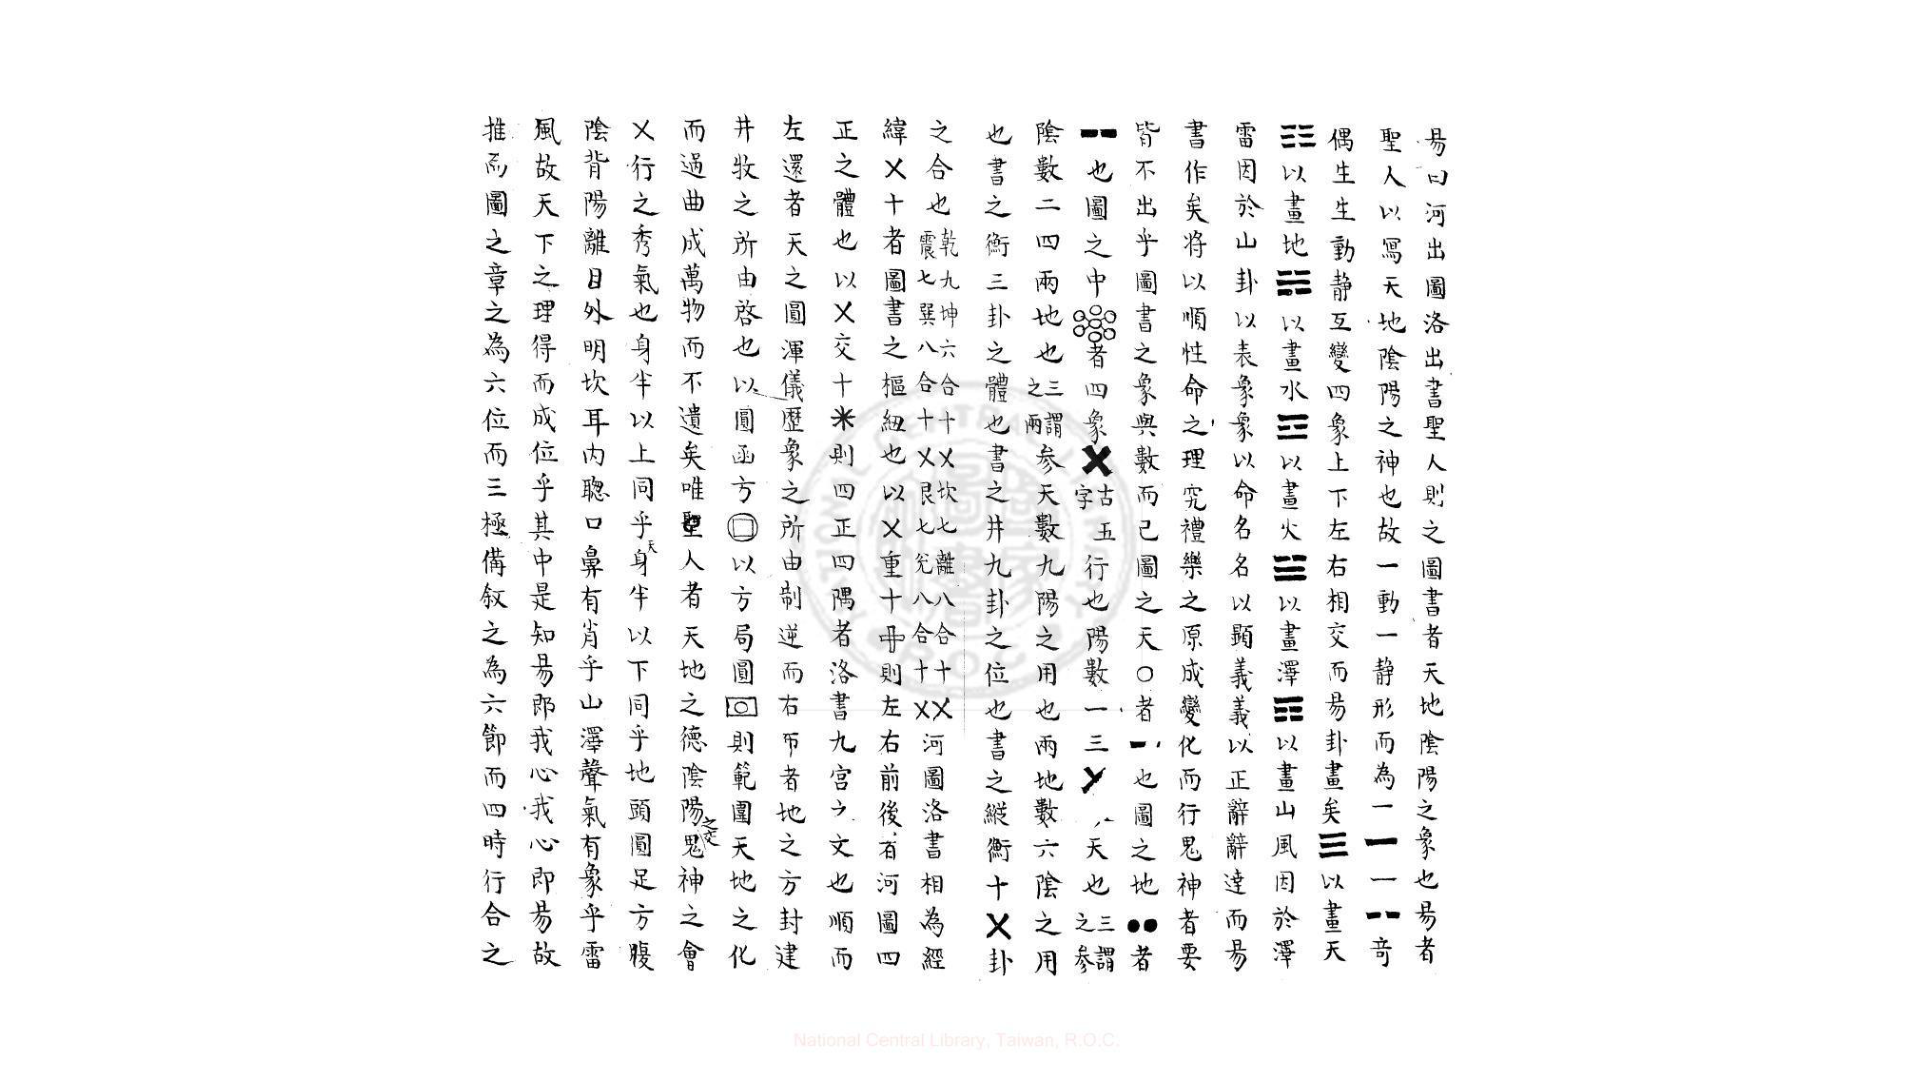 易曰河出圖洛出書聖人則之圖書者天地陰陽之象也易者
聖人以寫天地陰陽之神也故一動一静形而為一⚊一⚋竒
偶生生動静互變四象上下左右相交而易卦畫矣☰以畫天
☷以畫地☵以畫水☲以畫火☱以畫澤☶以畫山風因於澤
雷因於山卦以表象象以命名名以顕義義以正辭辭達而易
書作矣将以順性命之理究禮樂之原成變化而行鬼神者要
皆不出乎圖書之象與數而已圖之天○者⚊也圖之地●●者
⚋也圖之中者四象㐅古五字行也陽數一三㐅天也三謂之參
陰數二四兩地也三謂之兩参天數九陽之用也兩地數六陰之用
也書之衡三卦之體也書之井九卦之位也書之縱衡十㐅卦
之合也乾九坤六合十㐅坎七離八合十㐅震七巽八合十㐅艮七兊八合十㐅河圖洛書相為經
緯㐅十者圖書之樞紐也以㐅重十則左右前後者河圖四
正之體也以㐅交十米則四正四隅者洛書九宫之文也順而
左還者天之圓渾儀歷象之所由制逆而右帀者地之方封建
井牧之所由啓也以圓函方以方局圓則範圍天地之化
而過曲成萬物而不遺矣唯聖人者天地之德陰陽之交鬼神之會
㐅行之秀氣也身半以上同乎天身半以下同乎地頭圓足方腹
陰背陽離目外明坎耳内聰口鼻有肖乎山澤聲氣有象乎雷
風故天下之理得而成位乎其中是知易即我心我心即易故
推而圖之章之為六位而三極備叙之為六節而四時行合之
National Central Library, Taiwan, R.O.C.